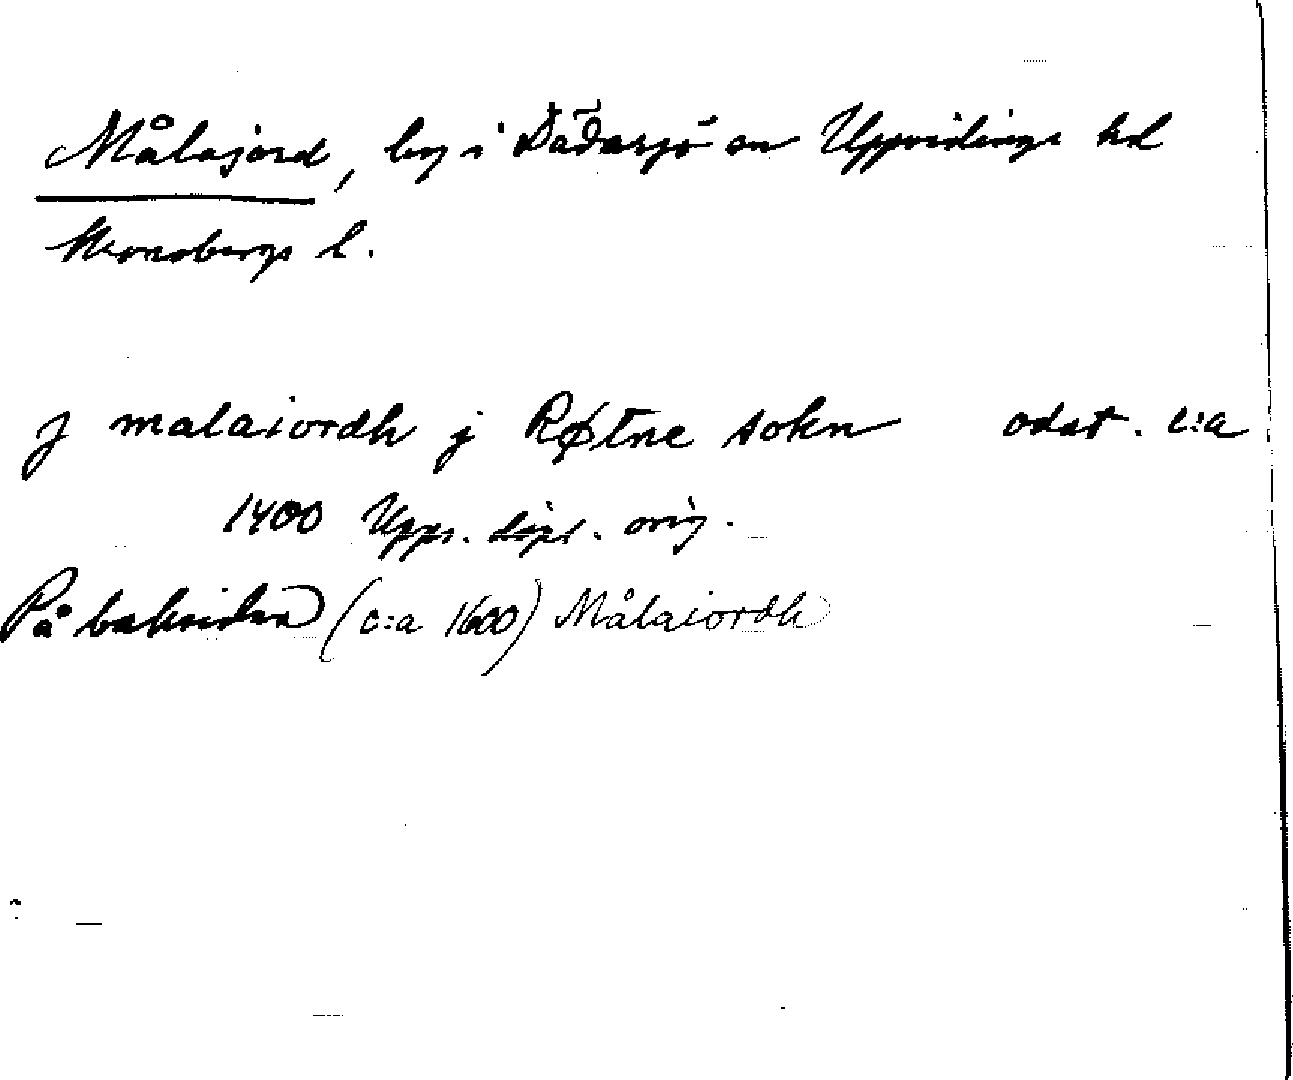 Målajord, by i Dädesjö sn Uppvidinge hd
Kronobergs l.
J malaiordh j Røtne sokn odat. c:a
1400 Upps. dipl. orig.
På baksidan (c:a 1600) Målaiordh